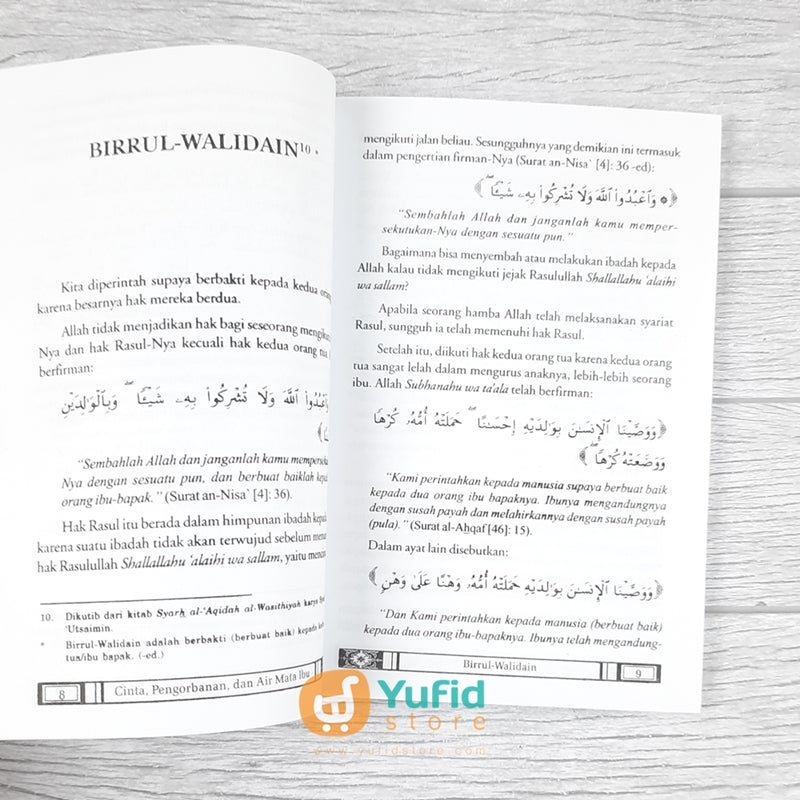 BIRRUL-WALIDAIN10 *
Kita diperintah supaya berbakti kepada kedua orang
karena besarnya hak mereka berdua.
Allah tidak menjadikan hak bagi seseorang mengikuti
Nya dan hak Rasul-Nya kecuali hak kedua orang tua
berfirman:
وَٱعْبُدُوا۟ ٱللَّهَ وَلَا تُشْرِكُوا۟ بِهِۦ شَيْـًٔا ۖ وَبِٱلْوَٰلِدَيْنِ
"Sembahlah Allah dan janganlah kamu mempersekutu
Nya dengan sesuatu pun, dan berbuat baiklah kepada
orang ibu-bapak." (Surat an-Nisa` [4]: 36).
Hak Rasul itu berada dalam himpunan ibadah kepada
karena suatu ibadah tidak akan terwujud sebelum
hak Rasulullah Shallallahu 'alaihi wa sallam, yaitu
10. Dikutib dari kitab Syarh al-'Aqidah al-Wasithiyah karya
'Utsaimin.
* Birrul-Walidain adalah berbakti (berbuat baik) kepada
tua/ibu bapak. (-ed.)
8 Cinta, Pengorbanan, dan Air Mata Ibu
mengikuti jalan beliau. Sesungguhnya yang demikian ini termasuk
dalam pengertian firman-Nya (Surat an-Nisa` [4]: 36 -ed):
﴿ ۞ وَٱعْبُدُوا۟ ٱللَّهَ وَلَا تُشْرِكُوا۟ بِهِۦ شَيْـًٔا ۖ ﴾
"Sembahlah Allah dan janganlah kamu memper-
sekutukan-Nya dengan sesuatu pun."
Bagaimana bisa menyembah atau melakukan ibadah kepada
Allah kalau tidak mengikuti jejak Rasulullah Shallallahu 'alaihi
wa sallam?
Apabila seorang hamba Allah telah melaksanakan syariat
Rasul, sungguh ia telah memenuhi hak Rasul.
Setelah itu, diikuti hak kedua orang tua karena kedua orang
tua sangat lelah dalam mengurus anaknya, lebih-lebih seorang
ibu. Allah Subhanahu wa ta'ala telah berfirman:
﴿ وَوَصَّيْنَا ٱلْإِنسَـٰنَ بِوَٰلِدَيْهِ إِحْسَـٰنًا ۖ حَمَلَتْهُ أُمُّهُۥ كُرْهًا
وَوَضَعَتْهُ كُرْهًا ۖ ﴾
"Kami perintahkan kepada manusia supaya berbuat baik
kepada dua orang ibu bapaknya. Ibunya mengandungnya
dengan susah payah dan melahirkannya dengan susah payah
(pula)." (Surat al-Ahqaf [46]: 15).
Dalam ayat lain disebutkan:
﴿ وَوَصَّيْنَا ٱلْإِنسَـٰنَ بِوَٰلِدَيْهِ حَمَلَتْهُ أُمُّهُۥ وَهْنًا عَلَىٰ وَهْنٍ ﴾
"Dan Kami perintahkan kepada manusia (berbuat baik)
kepada dua orang ibu-bapaknya. Ibunya telah mengandung-
Birrul-Walidain 9
Yufid
store
www.yufidstore.com